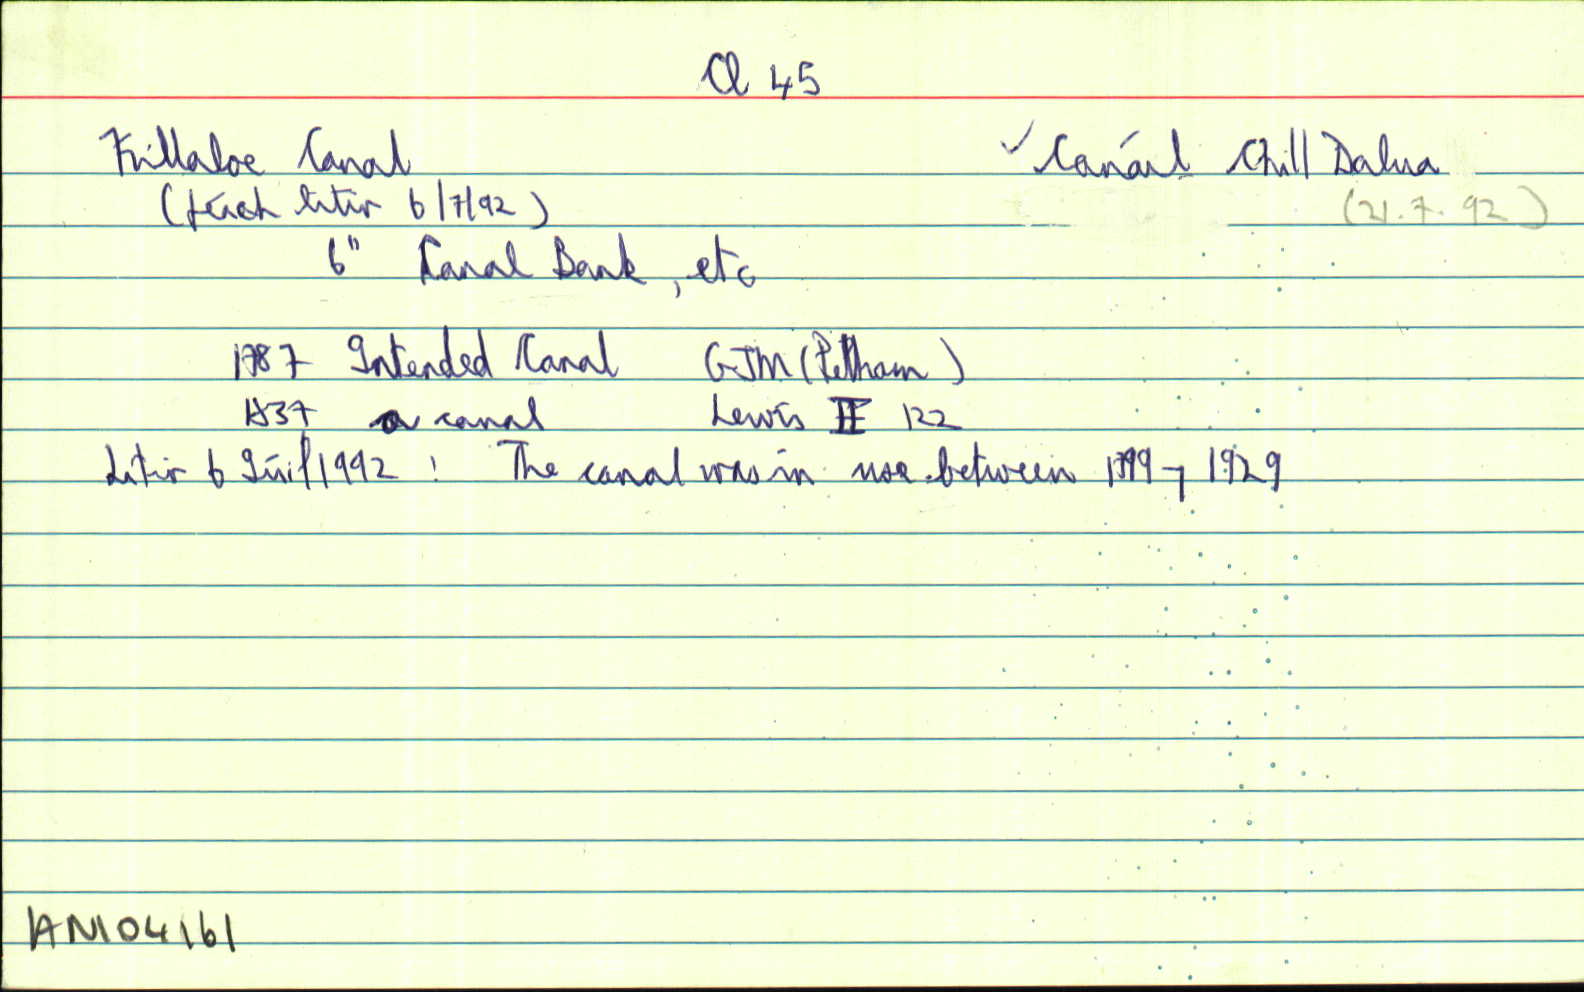 Cl 45
Killaloe Canal ✓ Canáil Chill Dalua
(féach litir 6/7/92) (21.7.92)
6" Canal Bank, etc
1787 Intended Canal GJM (Pelham)
1837 a canal Lewis II 122
Litir 6 Iúil 1992: The canal was in use between 1799 ⁊ 1929
AN104161